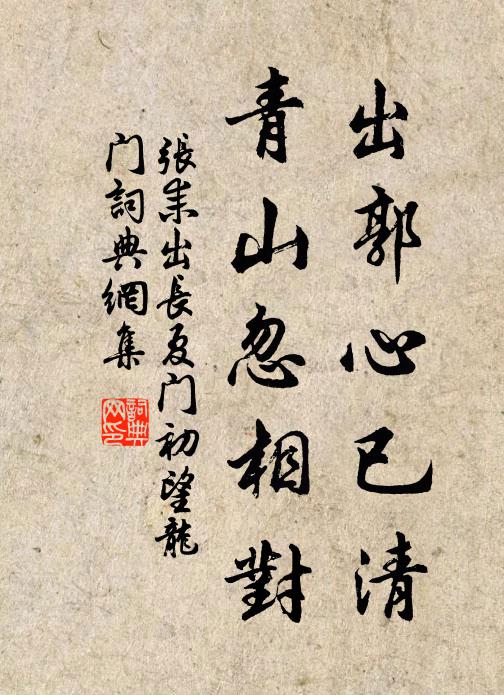 出郭心已清
青山忽相對
張耒出長夏门初望龍
门詞典網集
詞典
网印